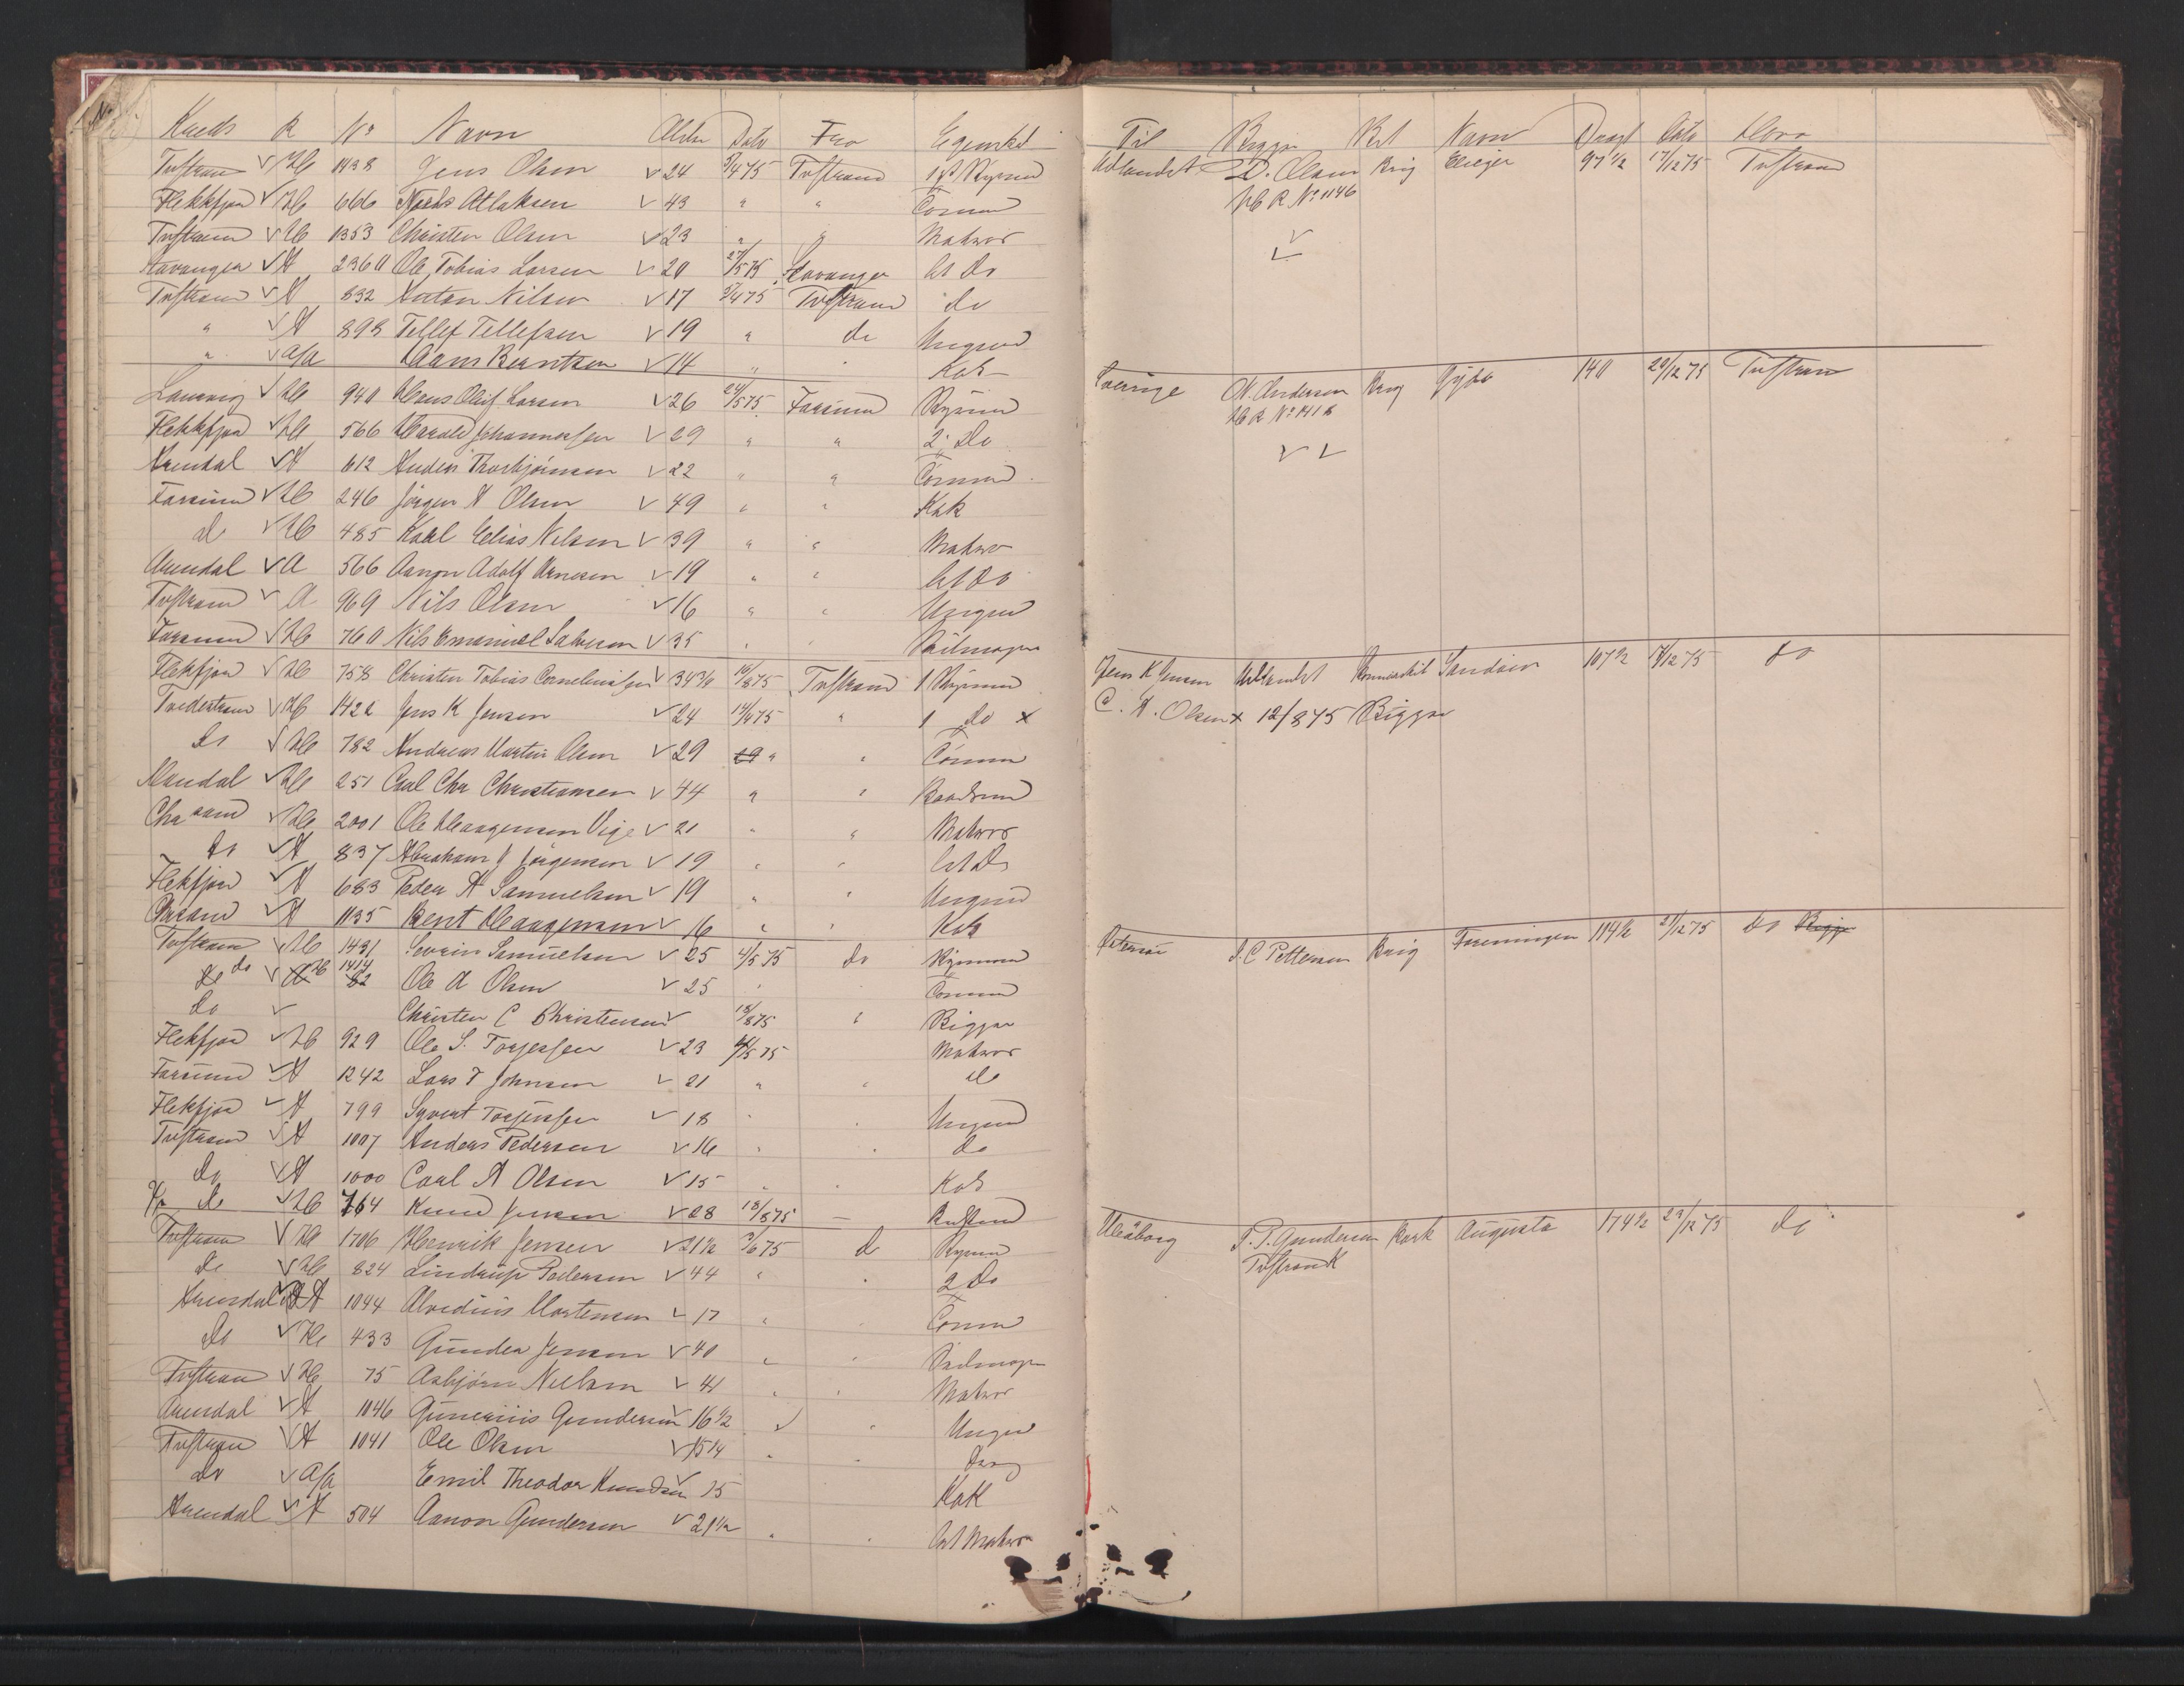 Kreds R No Navn Alder Dato Fra Egenskab
Tvstrand Hb 1438 Jens Olsen 24 3/4 75 Tvstrand 1st Styrmd
Flekkfjord Hb 666 Atlaksen 43 " " Tømmd
Tvstrand Hb 1353 Christen Olsen 23 " " Matros
Stavanger A 2360 Ole Tobias Larsen 20 27/5 75 Stavanger Lt do
Tvstrand A 832 Anton Nilsen 17 3/4 75 Tvstrand do
" A 898 Tellef Tellefsen 19 " do Ungmd
" a/a Hans Berntsen 14 " " Kok
Laurvig Hb 940 Hans Oluf Larsen 26 24/5 75 Farsund Styrmd
Flekkfjord Hb 566 Harald Johannessen 29 " " 2 do
Arendal A 612 Anders Thorbjørnsen 22 " " Tømmd
Farsund Hb 246 Jørgen A Olsen 49 " " Kok
do Hb 485 Karl Elias Nilsen 39 " " Matros
Arendal A 566 Aanon Adolf Arnesen 19 " " Lt do
Tvstrand A 969 Nils Olsen 16 " " Ungmd
Farsund Hb 760 Nils Emanuel Salvesen 35 " " Seilmager
Flekfjord Hb 758 Christen Tobias Corneliussen 34 3/4 18/8 75 Tvstrand 1 Styrmd
Tvedestrand Hb 1422 Jens K Jensen 24 14/4 75 " 1 do x
do Hb 782 Andreas Martin Olsen 29 " " Tømm
Mandal Hb 251 Carl Chr Christiansen 44 " " Baadsmd
Chrsand Hb 2001 Ole Haagensen Vige 21 " " Matros
do A 837 Abraham J Jørgensen 19 " " Lt do
Flekfjord A 683 Peder A Samuelsen 19 " " Ungmd
Chrsand A 1135 Bent Haagensen 16 " " Kok
Tvstrand Hb 1431 Severin Samuelsen 25 4/5 75 do Styrmand
do Hb 1414 Ole A Olsen 25 " " Tømmd
do Christen C Christensen 18/8 75 " Bigger
Flekfjord Hb 929 Ole S. Torjessen 23 4/5 75 Matros
Farsund A 1242 Lars T Johnsen 21 " " do
Flekfjord A 799 Syvert Torjussen 18 " " Ungmd
Tvstrand A 1007 Anders Pedersen 16 " " do
do A 1000 Carl A Olsen 15 " " Kok
do Hb 764 Knud Jensen 28 18/8 75 –
Tvstrand Hb 1706 Henrik Jensen 21 1/2 3/6 75 d Styrmd
do Hb 824 Lindrup Pedersen 44 " " 2 do
Arendal A 1044 Alvedius Mortensen 17 " " Tømm
do Hb 433 Gunder Jensen 40 " " Seilmager
Tvstrand Hb 75 Asbjørn Nielsen 41 " " Matros
Arendal A 1046 Gunerius Gundersen 16 1/2 " " Ungmd
Tvstrand A 1041 Ole Olsen 15 1/4 " " Dreng
do a/a Emil Theodor Knudsen 15 Kok
Arendal A 504 Aanon Gundersen 21 1/2 " " Lt Matros
Til Bigger Navn Drægt Dato Hvor
Udlandet D. Olsen Brig Eliezer 97 1/2 17/12 75 Tvstrand
Hb R No 1146
Sverige N. Andersen Brig Gyda 140 22/12 75 Tvstrand
Hb R No 1418
Jens K Jensen Udlandet Sandøen 107 1/2 17/12 75 do
C. A. Olsen x 12/8 75 Bigger
J. C Pettersen Brig Foreningen 114 1/2 21/12 75 do
Uleaborg P. P. Gundersen Bark Augusta 174 1/2 23/12 75 do
Tvstrand